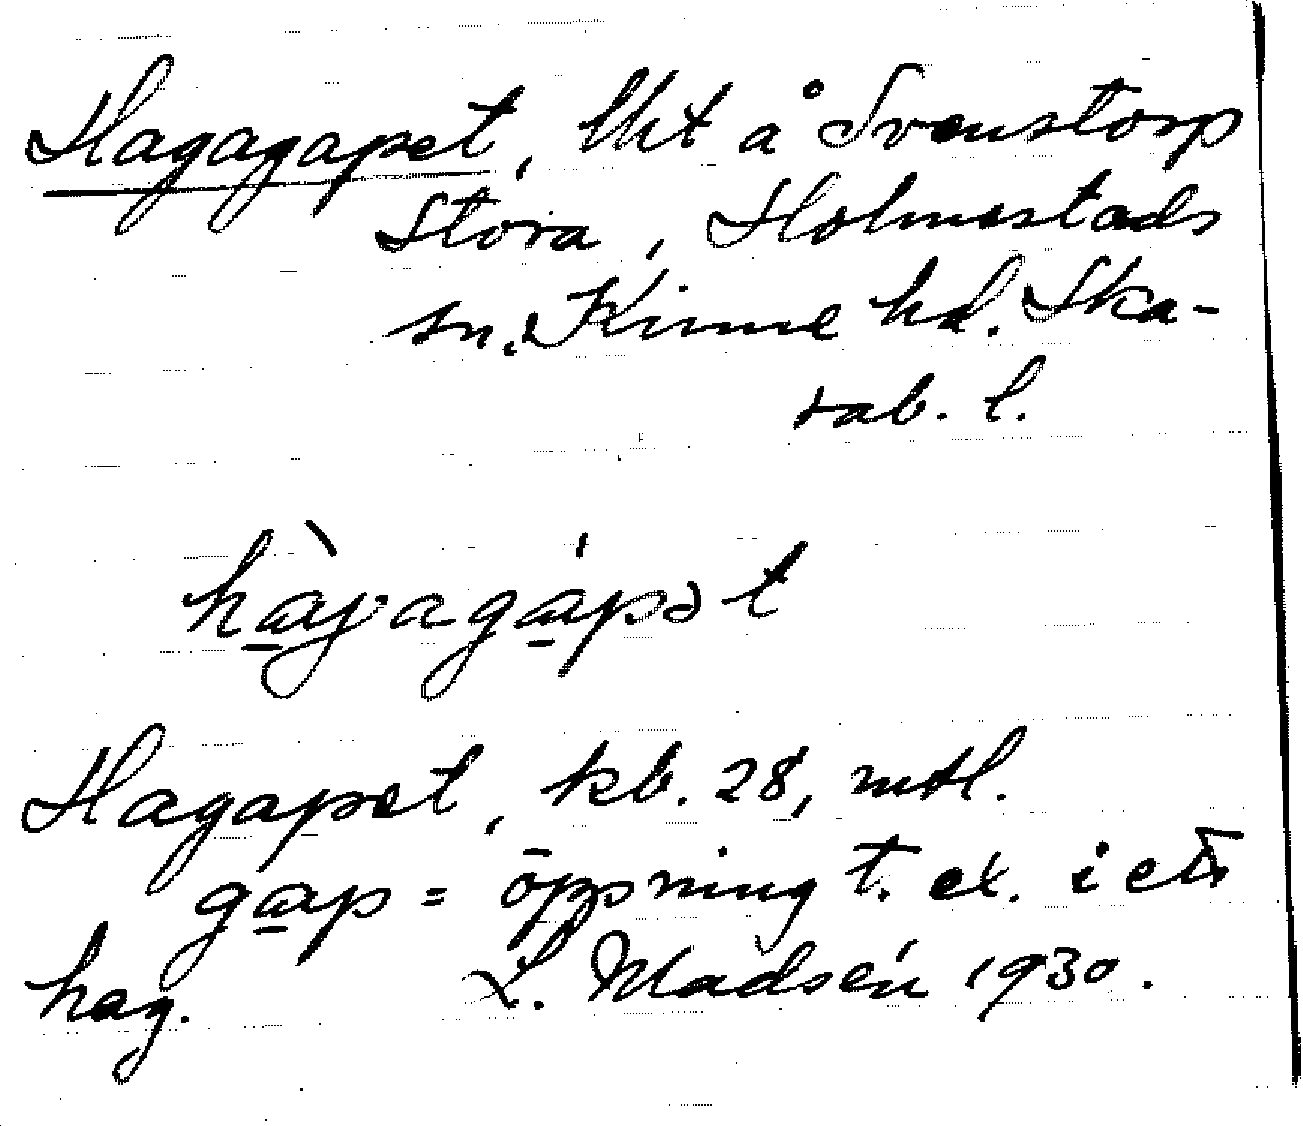 Hagagapet, lht å Svenstorp
Stora, Holmestads
sn. Kinne hd. Ska-
rab. l.
hàgagápət
Hagapet, kb. 28, mtl.
gap = öppning t. ex. i ett
hag. L. Madsén 1930.